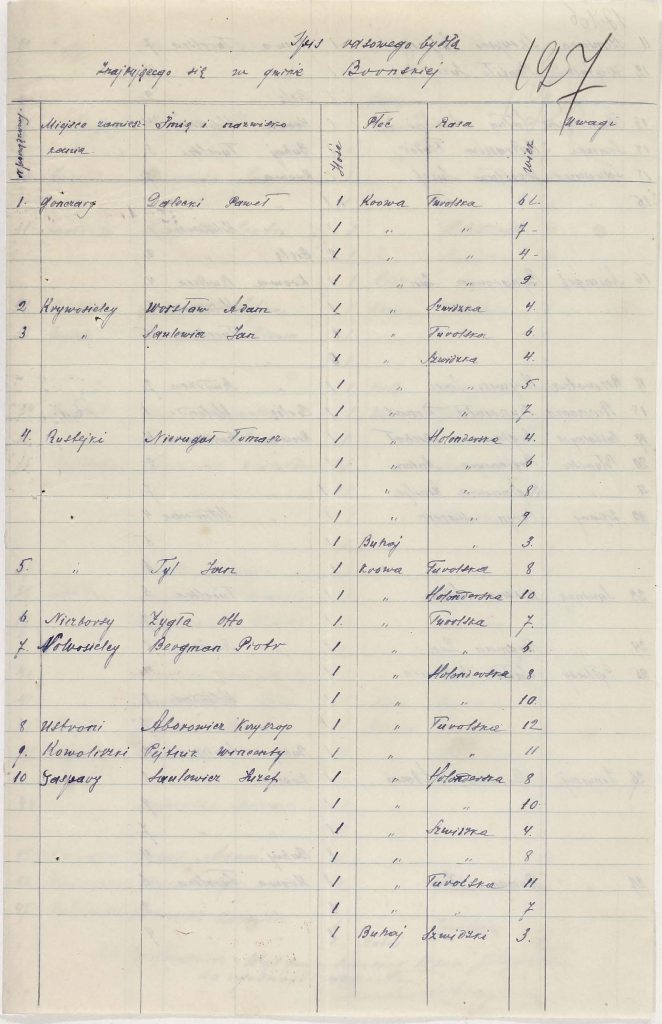 Spis rasowego bydła
Znajdującego się w gminie Boonskiej
127
Miejsce zamiesz- Imię i nazwisko Ilość Płeć Rasa wiek uwagi
kania
1. Gonczary Dalecki Paweł 1 Krowa Turolska 6 l.
1 " " 7 -
1 " " 4 -
1 " " 9
2 Krywosielcy Worsław Adam 1 " Szwidzka 4.
3 " Saulewicz Jan 1 " Turolska 6
1 " Szwidzka 4.
1 " " 5
1 " " 7.
4. Rustejki Nierugał Tomasz 1 " Holenderska 4.
1 " " 6
1 " " 8
1 " " 9
1 Buhaj " 3.
5. " Tyl Jan 1 Krowa Turolska 8
1 " Holenderska 10
6 Niezborsy Zygła Otto 1. " Turolska 7.
7 Nowosielcy Bergman Piotr 1 " " 6.
1 " Holenderska 8
1 " " 10.
8 Ustroni Aborowicz 1 " Turolska 12
9. Kowaliszki Wincenty 1 " " 11
10 Saulowicz Juzef 1 " Holenderska 8
1 " " 10
1 " Szwiszka 4.
1 " " 8
1 " Turolska 11
1 " " 7
1 Buhaj Szwidzki 3.